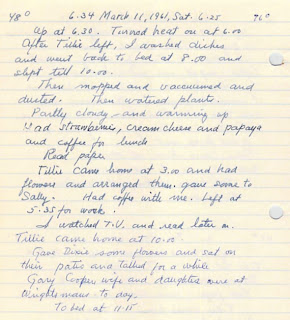 48° 6.34 March 11, 1961, Sat. 6.25 76°
Up at 6.30. Turned heat on at 6.00
After Tillie left, I washed dishes
and went back to bed at 8.00 and
slept till 10.00.
Then mopped and vacuumed and
dusted. Then watered plants.
Partly cloudy and warming up
Had strawberries, cream cheese and papaya
and coffee for lunch
Read paper
Tillie came home at 3.00 and had
flowers and arranged them. gave some to
Sally. Had coffee with me. Left at
5.35 for work.
I watched T.V. and read later on.
Tillie came home at 10.00
Gave Dixie some flowers and sat on
their patio and talked for a while
Gary Cooper wife and daughter were at
Wrightsmans to day.
To bed at 11.15